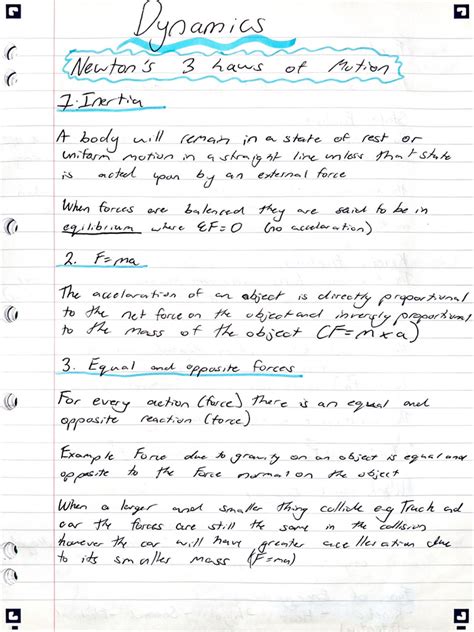 Dynamics
Newton's 3 Laws of Motion
1. Inertia
A body will remain in a state of rest or
uniform motion in a straight line unless that state
is acted upon by an external force
When forces are balanced they are said to be in
equilibrium where ΣF=0 (no acceleration)
2. F=ma
The acceleration of an object is directly proportional
to the net force on the object and inversly proportional
to the mass of the object (F=m×a)
3. Equal and opposite forces
For every action (force) there is an equal and
opposite reaction (force)
Example Force due to gravity on an object is equal and
opposite to the Force normal on the object
When a larger and smaller thing collide e.g Truck and
car the forces are still the same in the collision
however the car will have greater acelleration due
to its smaller mass (F=ma)